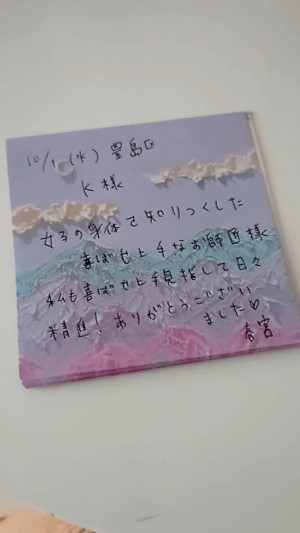 10/1 (水) 豊島区
K様
女子の身体を知りつくした
喜ばせ上手なお師匠様
私も喜ばせ上手目指して日々
精進！ありがとうござい
ました♡
春宮